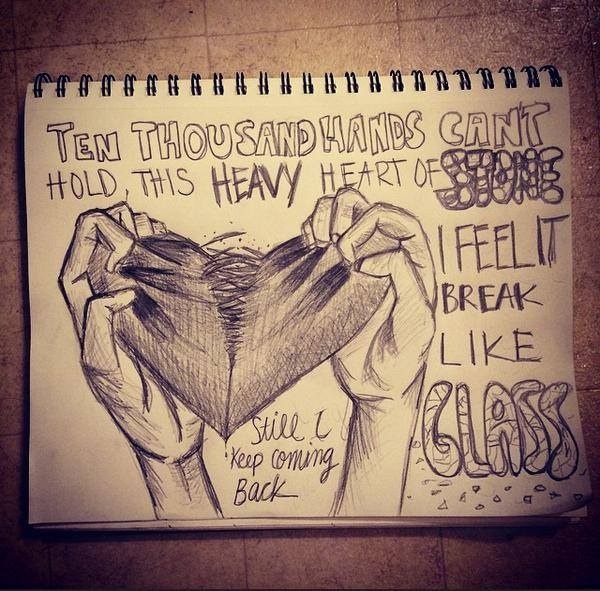 TEN THOUSAND HANDS CANT
HOLD, THIS HEAVY HEART OF STONE
I FEEL IT
BREAK
LIKE
GLASS
Still I
Keep coming
Back